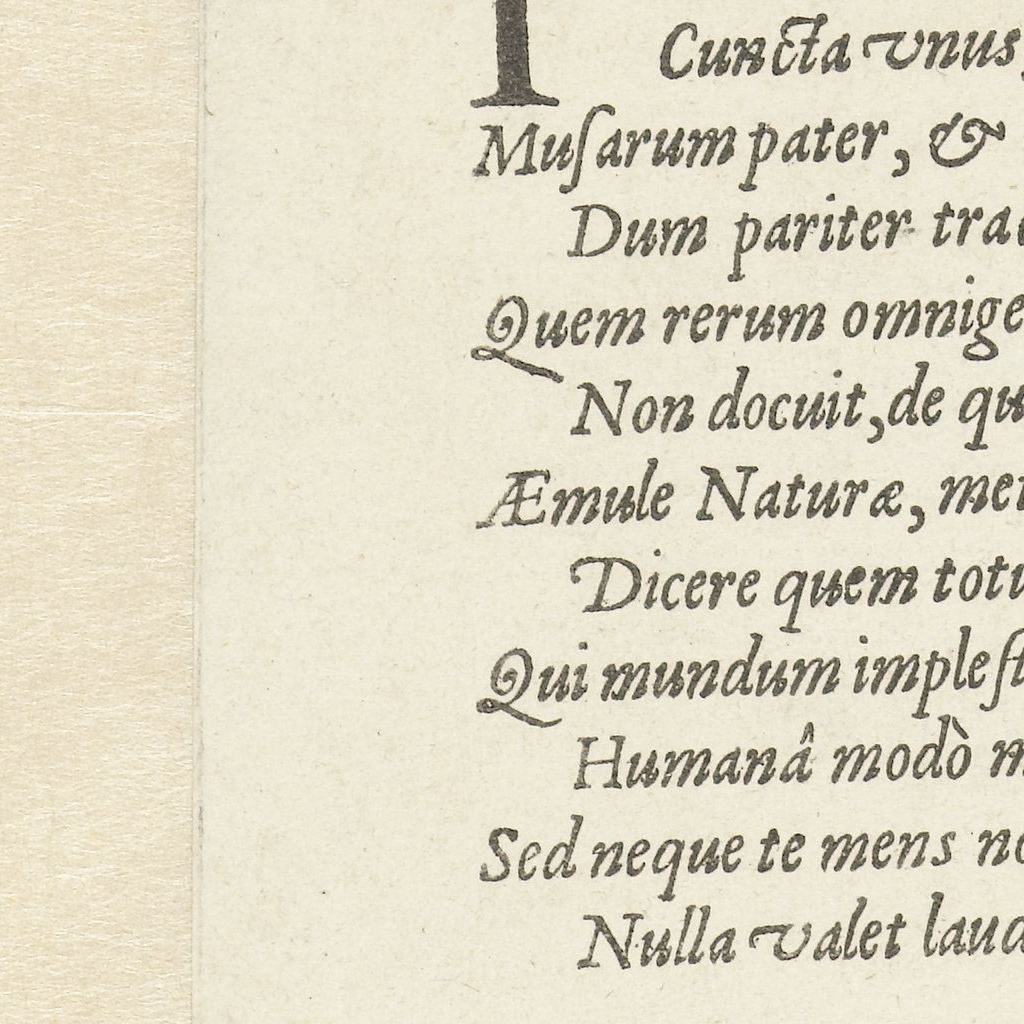 I Cuncta vnus,
Muſarum pater, &
Dum pariter
Quem rerum
Non docuit, de
Æmule Naturæ,
Dicere quem
Qui mundum
Humanâ modò
Sed neque te mens
Nulla valet